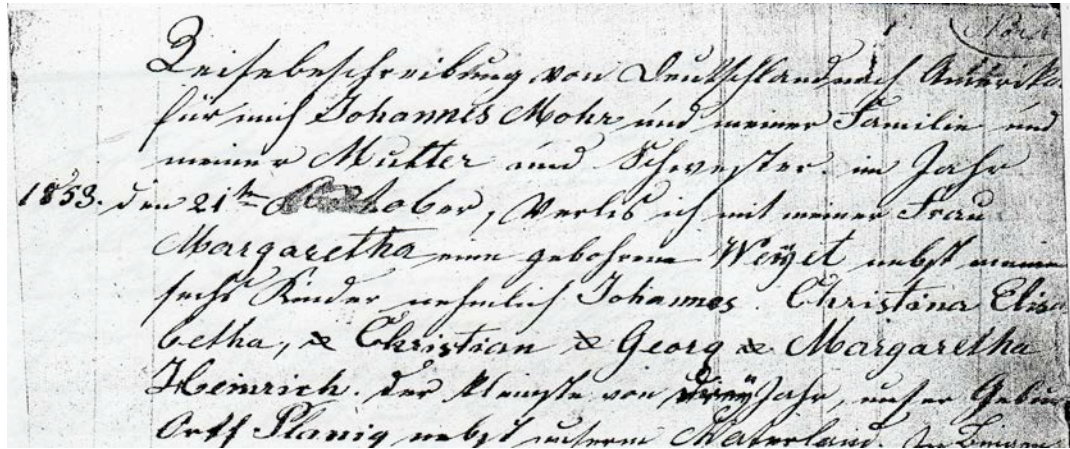 Reisebeschreibung von Deutschland nach Amerika
für mich Johannes Mohr und meiner Familie und
meiner Mutter und Schwester. im Jahr
1853. den 21ten October, Verlis ich mit meiner Frau
Margaretha eine gebohrene Weÿet nebst meinen
sechs Kinder nehmlich Johannes. Christina Elisa
betha, & Christian & Georg & Margaretha
Heinrich. der kleinste von dreÿ Jahr, unser
Ortt Planig nebst unserm Vaterland. In Bingen